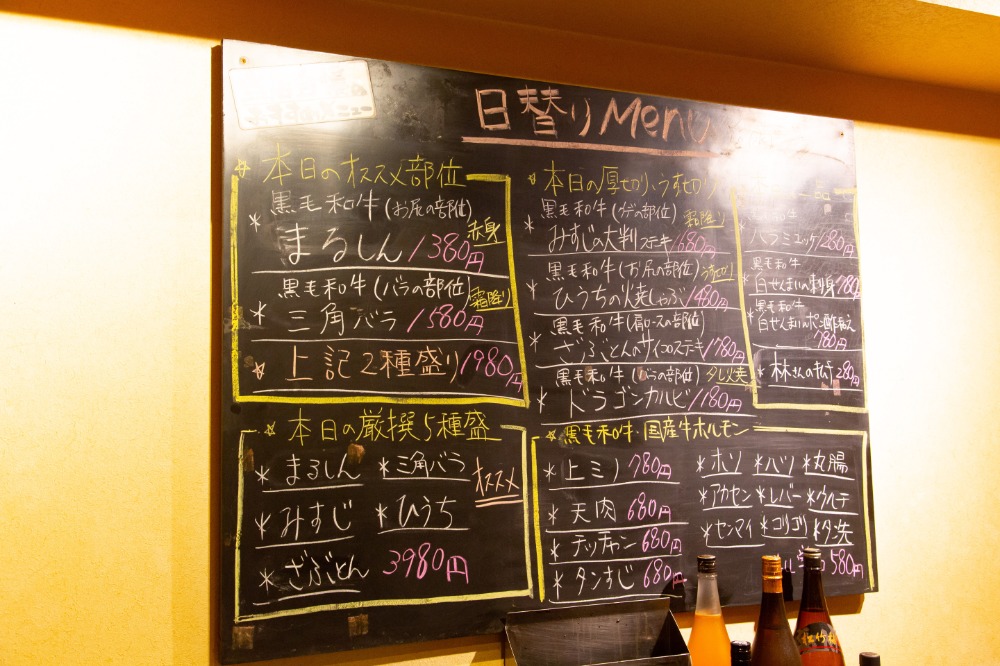 日替りMenu
本日のオススメ部位
黒毛和牛(お尻の部位)
赤身
*まるしん 1380円
黒毛和牛(バラの部位)
霜降り
*三角バラ 1580円
☆上記2種盛り 1980円
☆本日の厳撰5種盛
*まるしん *三角バラ
オススメ
*みすじ *ひうち
*ざぶとん 3980円
本日の厚切り、うす切り
黒毛和牛(ウデの部位)
霜降り
*みすじの大判ステキ 1680円
黒毛和牛(お尻の部位)
うす切り
*ひうちの焼しゃぶ 1480円
黒毛和牛(肩ロースの部位)
*ざぶとんのサイコロステキ 1780円
黒毛和牛(バラの部位)
タレ火焼
*ドラゴンカルビ 1180円
一品
黒毛和牛
ハラミユッケ 1280円
黒毛和牛
*白せんまいの刺身 780円
黒毛和牛
*白せんまいのポン酢和え
780円
*林さんのキムチ 280円
☆黒毛和牛・国産牛ホルモン
*上ミノ 780円
*天肉 680円
*テッチャン 680円
*タンすじ 680円
*ホソ *ハツ *丸腸
*アカセン *レバー *ウルテ
*センマイ *コリコリ
580円
竹松